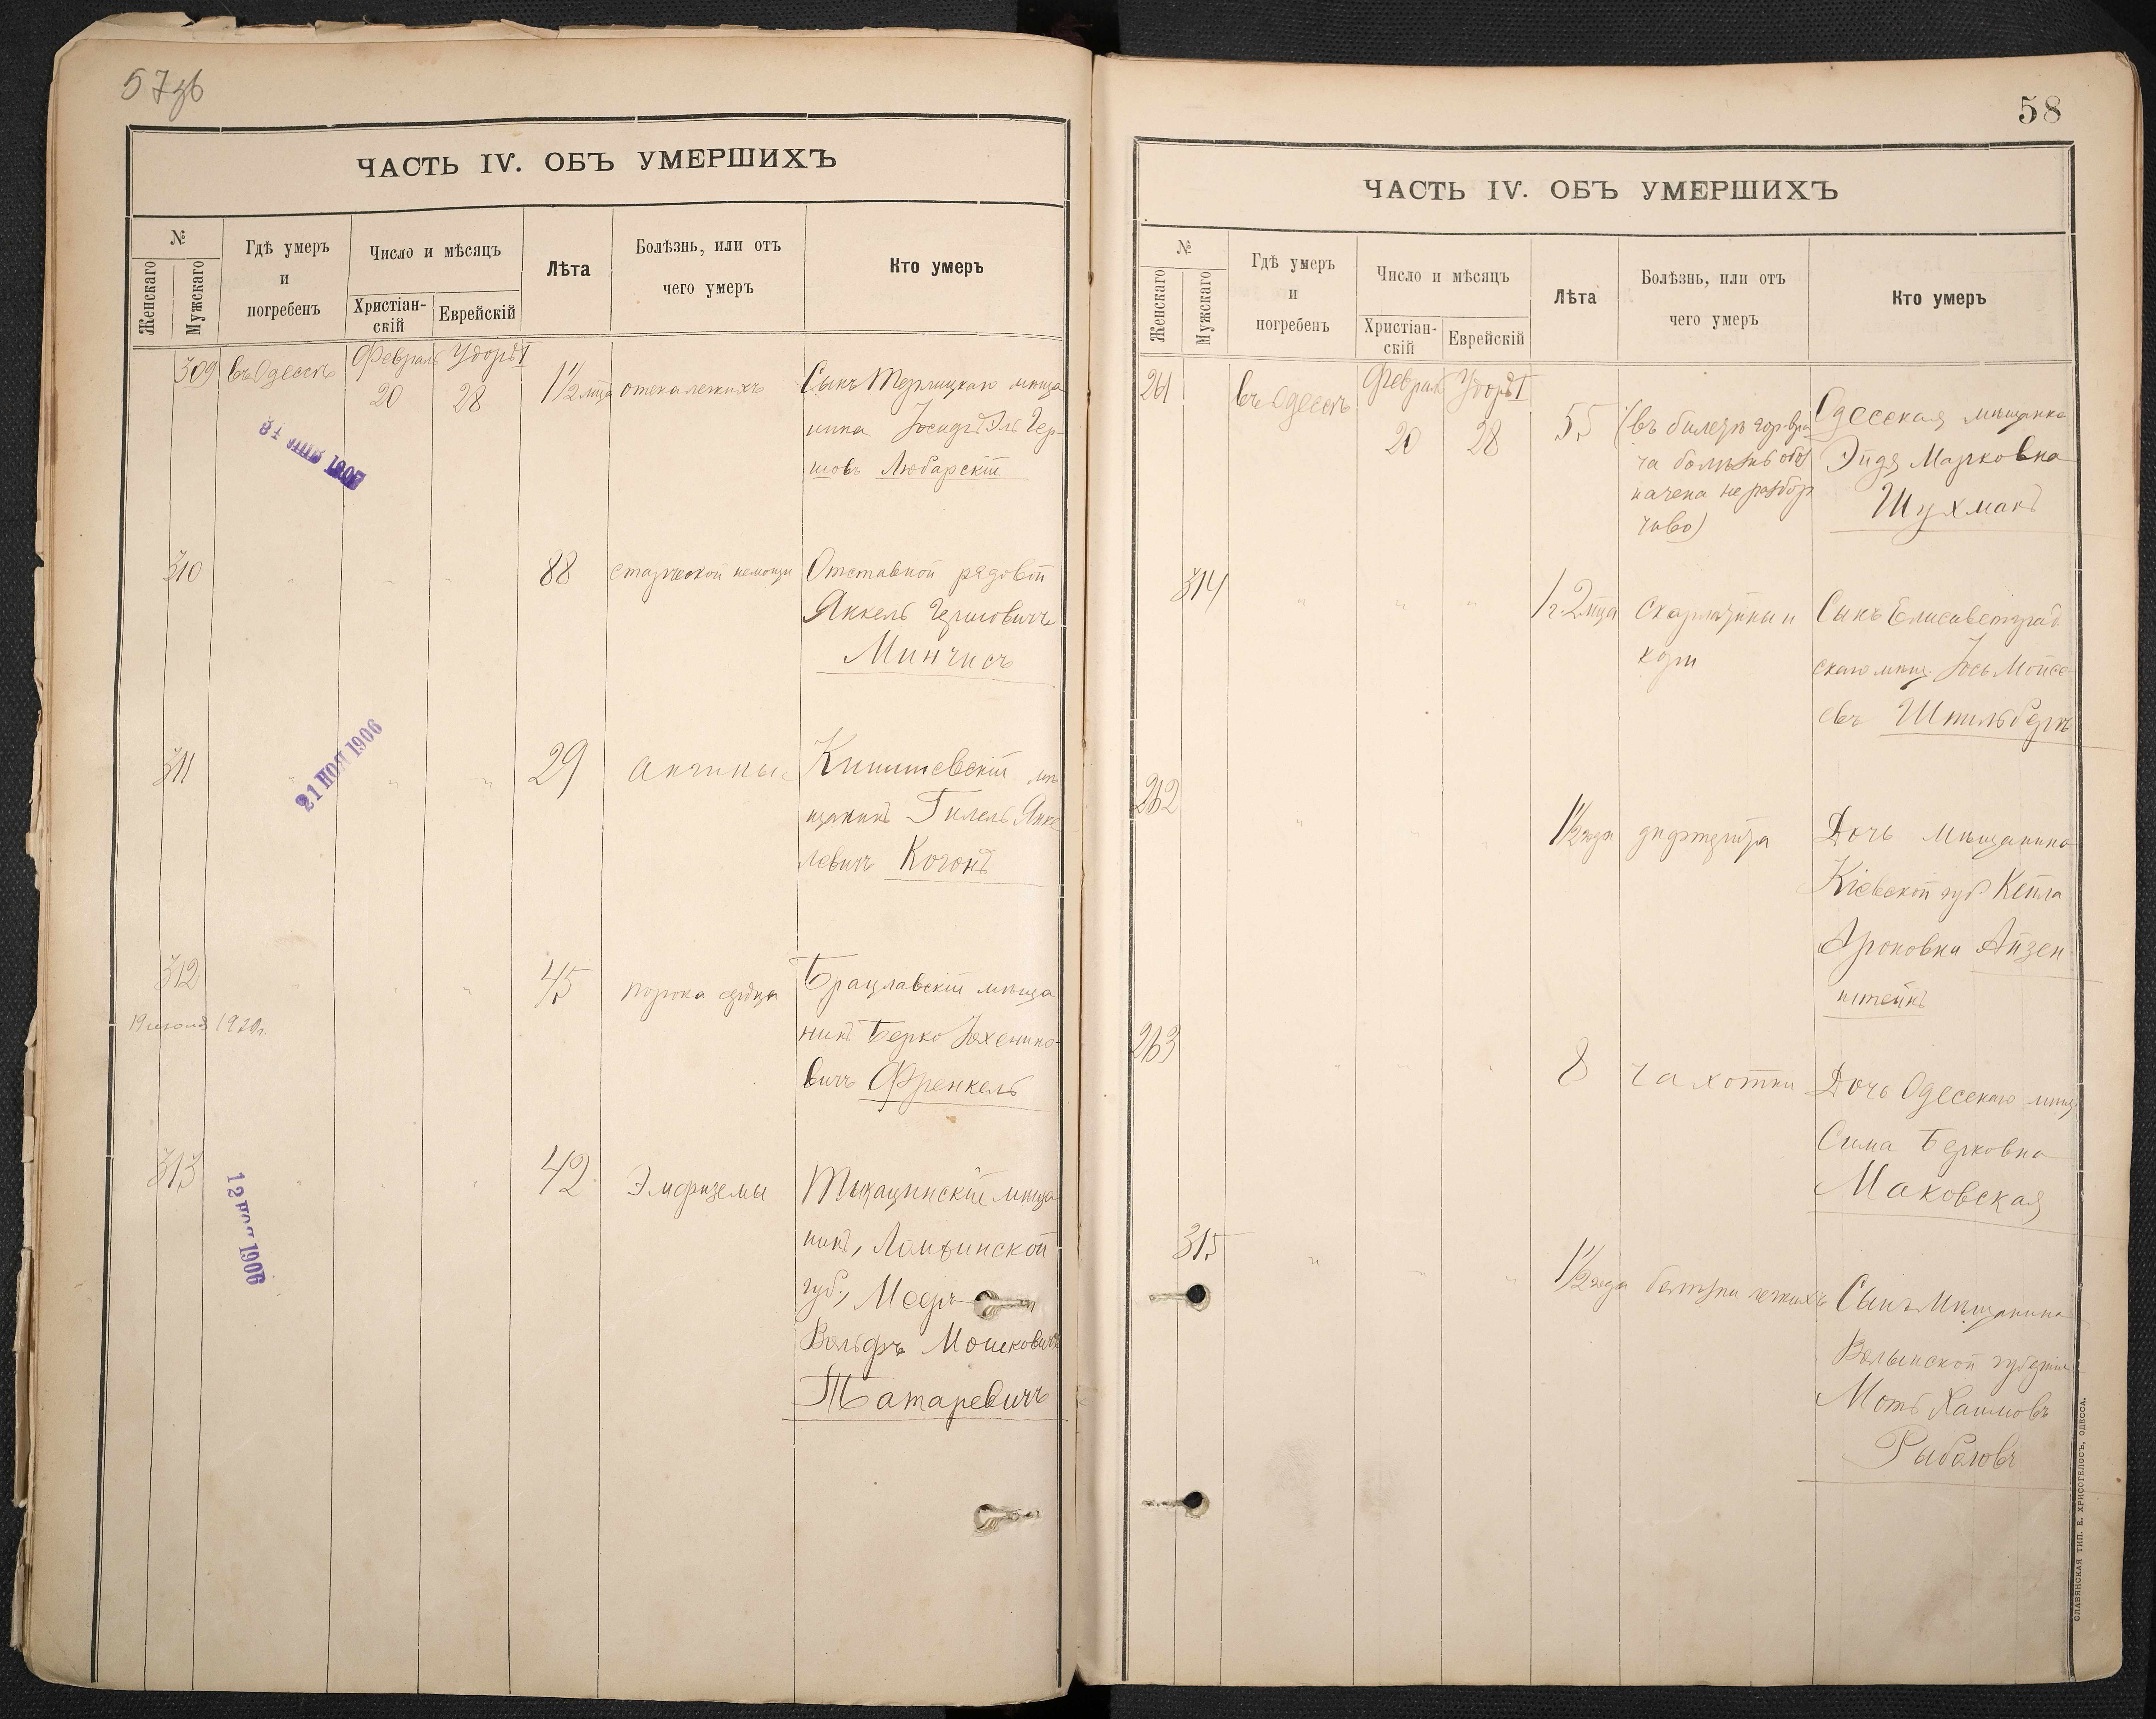 57об
ЧАСТЬ IV. ОБЪ УМЕРШИХЪ
№
Женскаго
Мужскаго
Гдѣ умеръ
и
погребенъ
Число и мѣсяцъ
Христіан-
скій
Еврейскій
Лѣта
Болѣзнь, или отъ
чего умеръ
Кто умеръ
309 въ Одессѣ Февраль 20 28 1½ мца отека легкихъ
Сынъ мѣща
нина Іосифъ Эль Гер-
шовъ Любарскій
1907
310 88 старческой немощи
Отставной рядовой
Янкель Гершовичъ
Минчисъ
21 НОЯ 1906
311 29 ангины
Кишиневскій мѣ
щанинъ Гилель Янке
левичъ Когонъ
312 45 порока сердца
19 1920г.
Брацлавскій мѣща
нинъ Берко
вичъ Френкель
313 42 Эмфиземы
12 1906
мѣща
нинъ, Ломжинской
губ., Меер
Вольфъ Мошковичъ
Татаревичъ
58
ЧАСТЬ IV. ОБЪ УМЕРШИХЪ
№
Женскаго
Мужскаго
Гдѣ умеръ
и
погребенъ
Число и мѣсяцъ
Христіан-
скій
Еврейскій
Лѣта
Болѣзнь, или отъ
чего умеръ
Кто умеръ
261 въ Одессѣ Февраль 20 28 55
(въ билетѣ гор. вра
ча болѣзнь обоз
начена неразбор
чиво)
Одесская мѣщанка
Эйдя Марковна
Шухманъ
314 1 г. 2 мца скарлатины и
кори
Сынъ Елисаветград
скаго мѣщ. Іось Мойсе
евъ Шпильбергъ
262 1½ года дифтерита
Дочь мѣщанина
Кіевской губ. Кейла
Ароновна Айзен
штейнъ
263 8 чахотки
Дочь Одесскаго мѣщ.
Сима Берковна
Маковская
315 1½ года болѣзни легкихъ
Сынъ Мѣщанина
Волынской губерніи
Моть Хаимовъ
Рыбаковъ
СЛАВЯНСКАЯ ТИП. Е. ХРИСОГЕЛОСЪ, ОДЕССА.